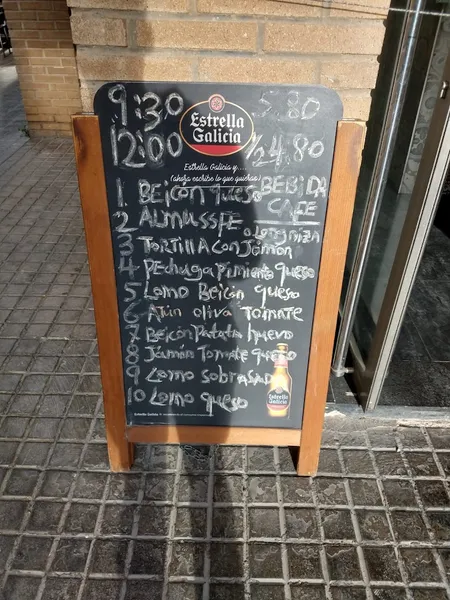 9:30 5.80
12:00 /24.80
Estrella
Galicia
Estrella Galicia y....
(ahora escribe lo que quieras)
1 BEICÓN queso BEBIDA
CAFE
2 ALMUSSFE o LONGANIZA
3 TORTILLA CON JAMON
4 PEchuga Pimiento queso
5 Lomo Beicón queso
6 Atún oliva TOMATE
7 BeicónPatata huevo
8 Jamon Tomate queso
9 Lomo sobrasad
10 Lomo queso
Estrella
Galicia
Estrella Galicia